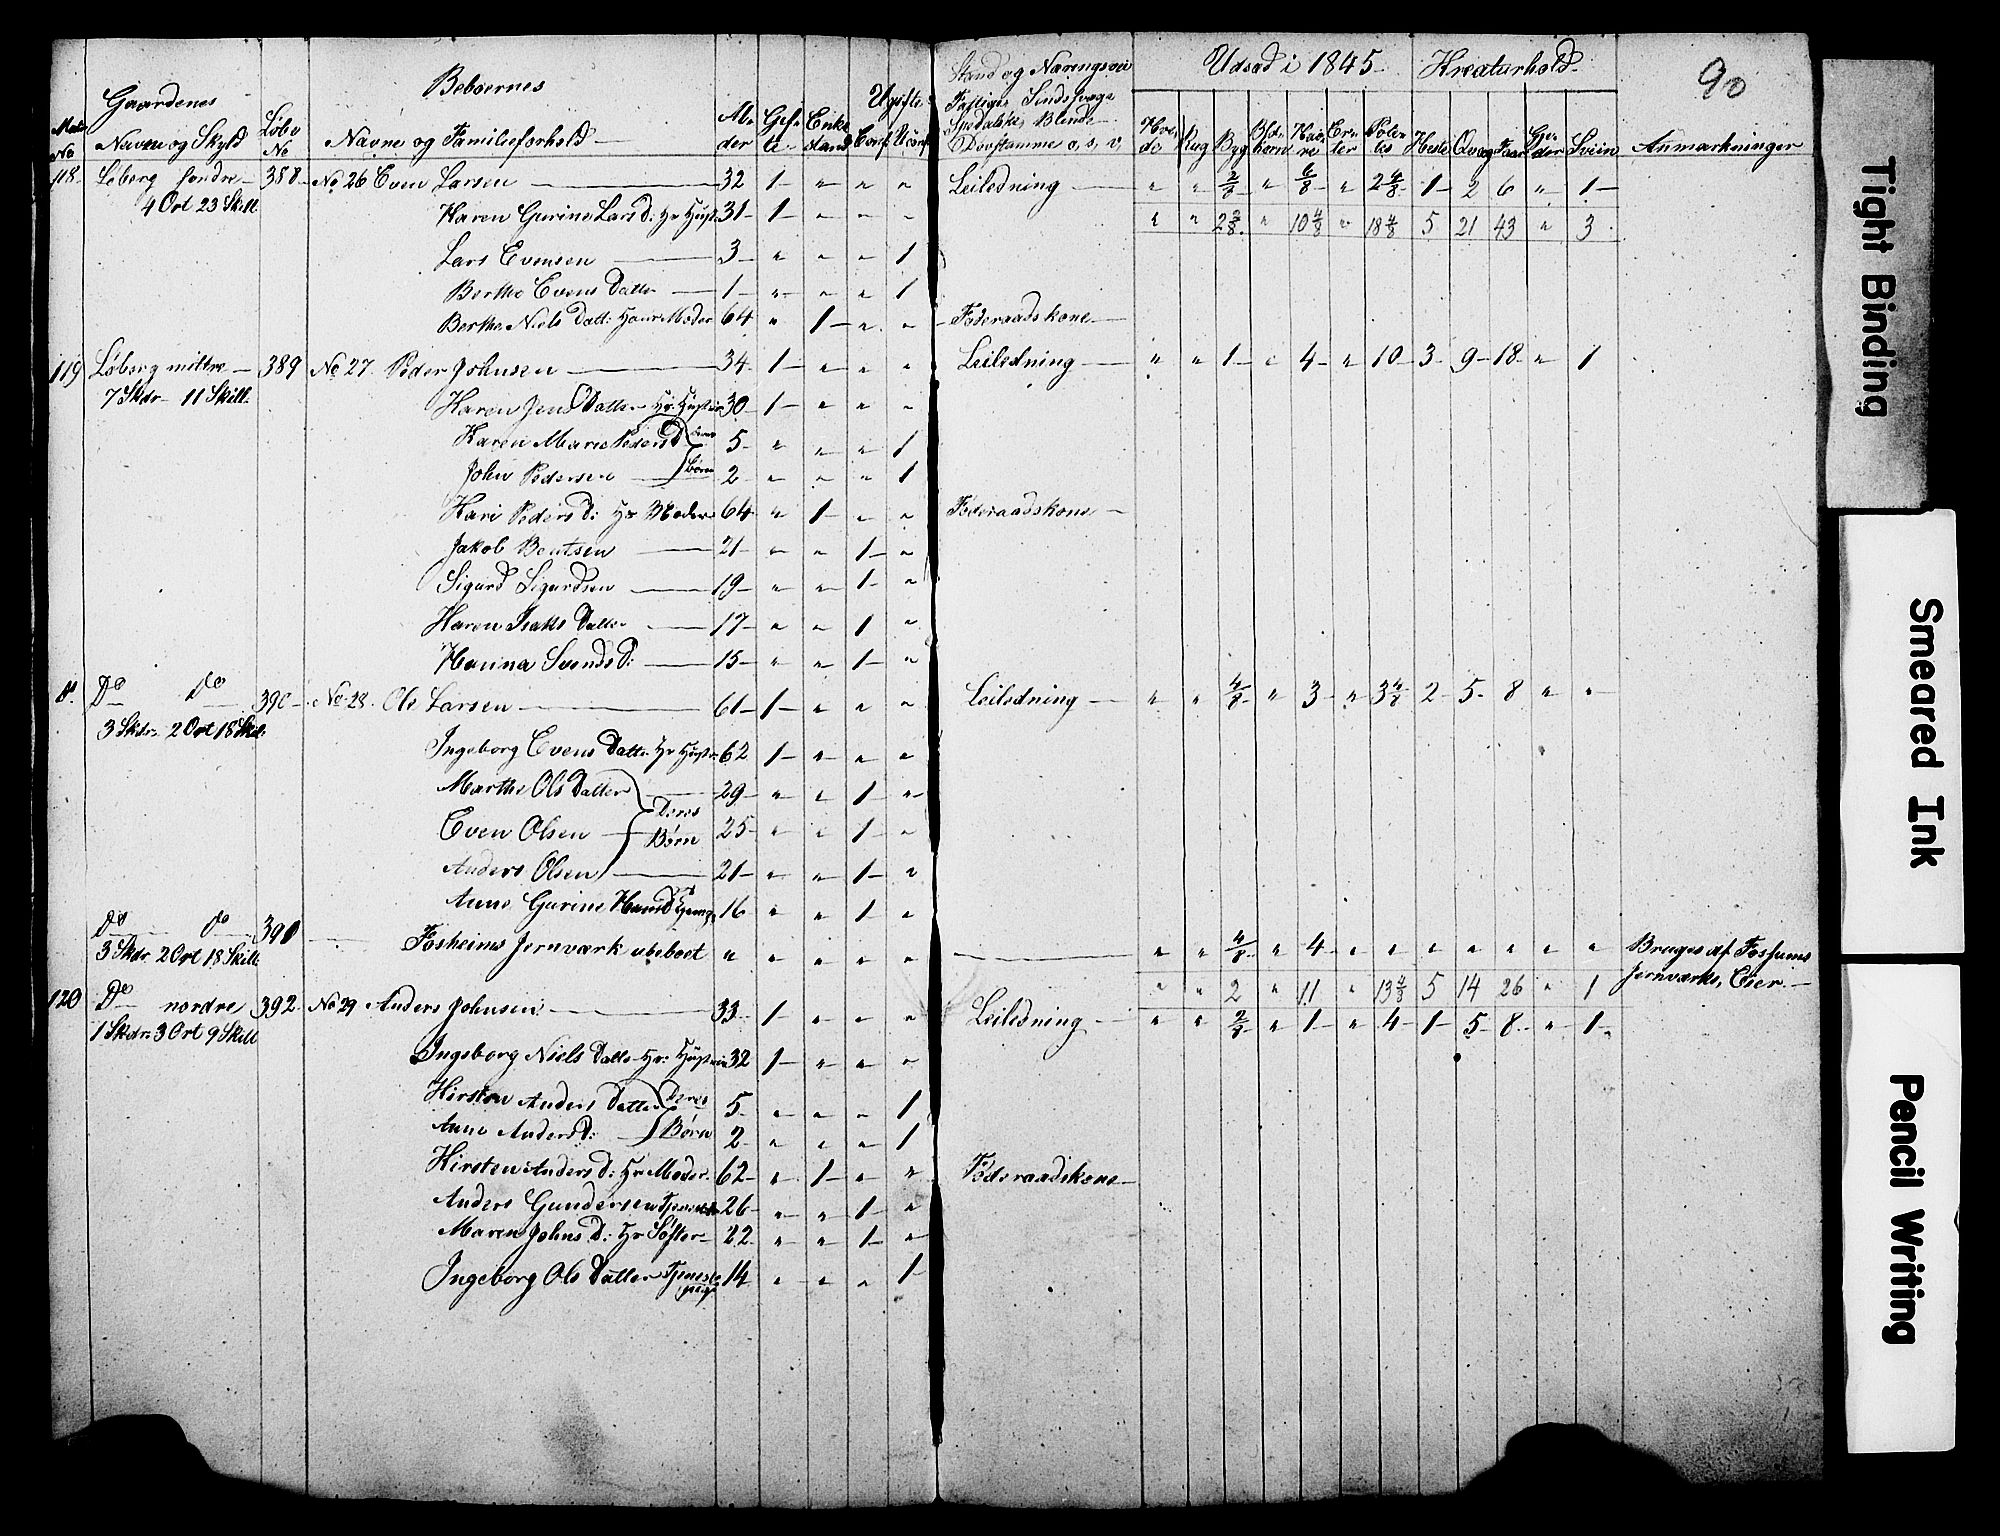 Gaardenes Beboernes Ugifte Stand og Næringsvei Udsæd i 1845 Kreaturhold 90
Matr No Navne og Skyld Løbe No Navne og Familieforhold Al-der Gif-te Enke stand Conf. Uconf. Fattige Sindssvage Spedalske, Blinde Døvstumme o, s, v, Hve-de Rug Byg Bld: korn Hav-re Er-ter Pote-tes Heste Qvæg Faar Gje-der Sviin Anmærkninger
118 Løberg søndre 388 No 26 Even Larsen 32 1 " " " Leilending " " 2/8 " 6/8 " 2 4/8 1 2 6 " 1
4 Ort 23 Skill Karen Gurine Lars D: Hs Hustr 31 1 " " " " " 2 2/8 " 10 4/8 " 18 4/8 5 21 43 " 3
Lars Evensen 3 " " " 1
Berthe Evens Datter 1 " " " 1
Berthe Niels Datt: Moder 64 " 1 " " Føderaadskone
119 Løberg mittre 389 No 27. Peder Johnsen 34 1 " " " Leilending " " 1 " 4 " 10 3 9 18 " 1
7 Skdr 11 Skill Karen Jens Datter Hs: Hustru 30 1 " " "
Karen Marie Peders D deres 5 " " " 1
John Pedersen Børn 2 " " " 1
Kari Peders D: Hs Moder 64 " 1 " " Føderaadskone
Jakob Bentsen 21 " " 1 "
Sigurd Sigurdsen 19 " " 1 "
Karen Isaks Datter 17 " " 1 "
Hanna Svends D: 15 " " 1 "
Do Do Do 390 No 28. Ole Larsen 61 1 " " " Leilending " " 4/8 " 3 " 3 4/8 2 5 8 " "
3 Skdr 2 Ort 18 Skil: Ingeborg Evens Datter Hs Hustr 62 1 " " "
Marthe Ols Datter 29 " " 1 "
Even Olsen Deres Børn 25 " " 1 "
Anders Olsen 21 " " 1 "
Anne Gurine 16 " " 1 "
Do Do 391 Fosheims Jernværk ubeboet " " " " " " " 4/8 " 4 " " " " " " " Bruges af Fossums
3 Skdr 2 Ort 18 Skill " " 2 " 11 " 13 4/8 5 14 26 " 1 Jernværks, Eier.
120 Do nordre 392 No 29 Anders Johnsen 33 1 " " " Leilending " " 2/8 " 1 " 4 1 5 8 " 1
1 Skdr 3 Ort 9 Skill Ingeborg Niels Datter Hs: Hustru 32 1 " " "
Kirsten Anders Datter Deres 5 " " " 1
Anne Anders D: Børn 2 " " " 1
Kirsten Anders D: Hs Moder 62 " 1 " " Føderaadskone
Anders Gundersen 26 " " 1 "
Maren Johns D: Hs Søster 22 " " 1 "
Ingeborg Ols Datter Tjeneste pige 14 " " " 1
Tight Binding
Smeared Ink
Pencil Writing